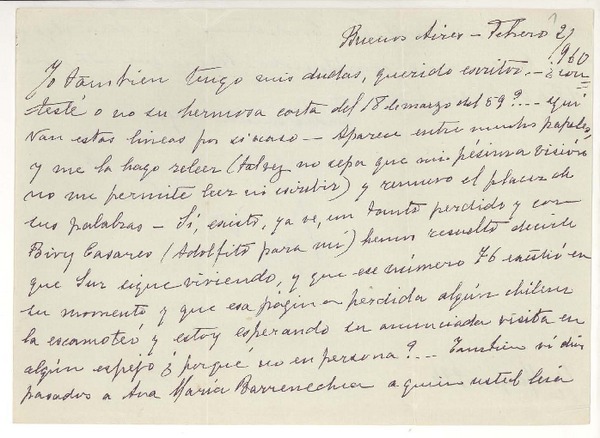 Buenos Aires – Febrero 2/
1960
Yo tambien tengo mis dudas, querido escritor – ¿con=
testé o no su hermosa carta del 18 de marzo del 59?... aquí
van estas líneas por si acaso – Aparece entre muchos papeles,
y me la hago releer (talvez no sepa que mi pésima visión
no me permite leer ni escribir) y renuevo el placer de
sus palabras – Sí, existo, ya ve, un tanto perdido y con
Bioy Casares (Adolfito para mí) hemos resuelto decirle
que Sur sigue viviendo, y que ese número 76 existió en
su momento y que esa página perdida algún chileno
la escamoteó y estoy esperando su anunciada visita en
algún espejo ¿porqué no en persona?... Tambien vi días
pasados a Ana María Barrenechea a quien usted leía